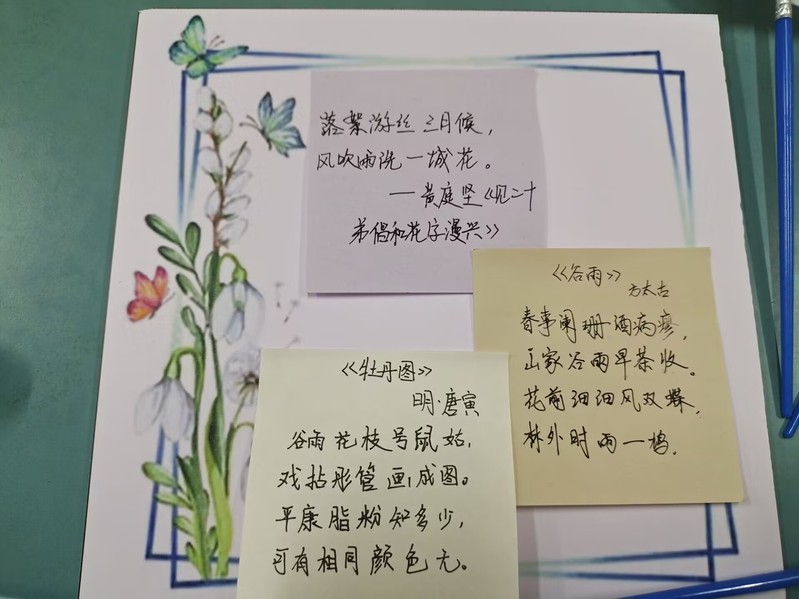 落絮游丝三月候，
风吹雨洗一城花。
——黄庭坚《见二十
弟倡和花字漫兴》
《谷雨》
方太古
春事阑珊酒病瘳，
山家谷雨早茶收。
花前细细风双蝶，
林外时雨一鸠。
《牡丹图》
明·唐寅
谷雨花枝号鼠姑，
戏拈彤管画成图。
平康脂粉知多少，
可有相同颜色无。